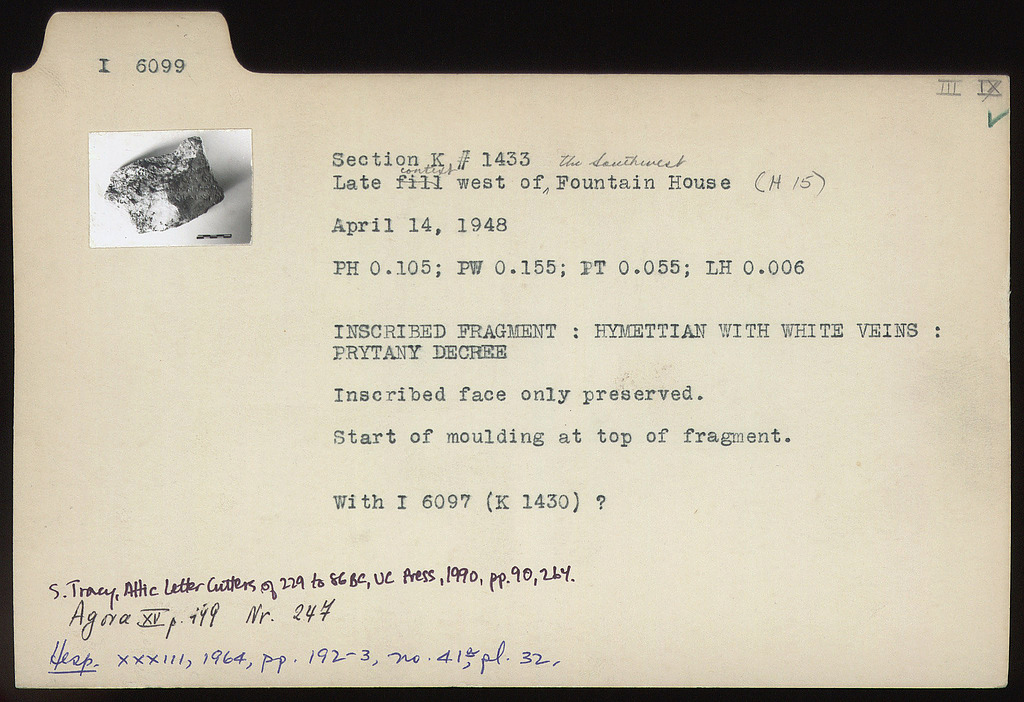 I 6099
III IX
Section K # 1433 the Southwest
context
Late fill west of Fountain House (H 15)
April 14, 1948
PH 0.105; PW 0.155; PT 0.055; LH 0.006
INSCRIBED FRAGMENT : HYMETTIAN WITH WHITE VEINS :
PRYTANY DECREE
Inscribed face only preserved.
Start of moulding at top of fragment.
With I 6097 (K 1430) ?
S. Tracy, Attic Letter Cutters of 229 to 86 BC, UC Press, 1990, pp. 90, 264.
Agora XV p. 199 Nr. 247
Hesp. XXXIII, 1964, pp. 192-3, no. 41a, pl. 32.